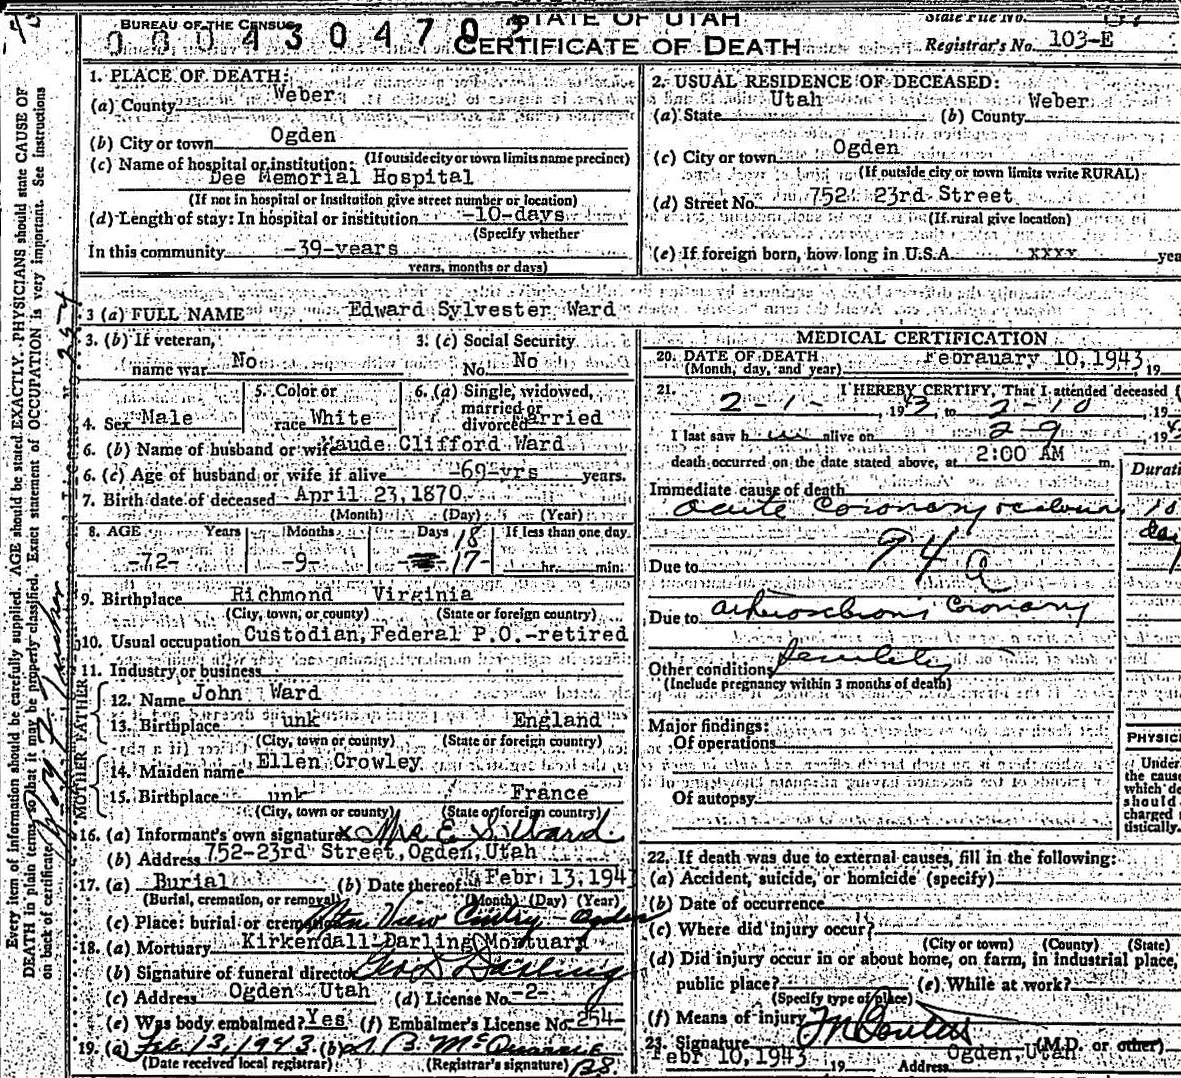 BUREAU OF THE CENSUS
STATE OF UTAH
State File No.
000430470
CERTIFICATE OF DEATH
Registrar's No. 103-E
1. PLACE OF DEATH:
(a) County Weber
(b) City or town Ogden
(If outside city or town limits name precinct)
(c) Name of hospital or institution:
Dee Memorial Hospital
(If not in hospital or Institution give street number or location)
(d) Length of stay: In hospital or institution -10-days
(Specify whether
In this community -39-years
years, months or days)
2. USUAL RESIDENCE OF DECEASED:
(a) State Utah (b) County Weber
(c) City or town Ogden
(If outside city or town limits write RURAL)
(d) Street No. 752 23rd Street
(If rural give location)
(e) If foreign born, how long in U.S.A. xxxx yea
3 (a) FULL NAME Edward Sylvester Ward
3. (b) If veteran,
name war No
3. (c) Social Security
No. No
4. Sex Male
5. Color or
race White
6. (a) Single, widowed,
married or
divorced Married
6. (b) Name of husband or wife Maude Clifford Ward
6. (c) Age of husband or wife if alive -69-yrs years.
7. Birth date of deceased April 23,1870
(Month) (Day) (Year)
8. AGE Years Months Days If less than one day
18
-72- -9- -17- hr. min.
9. Birthplace Richmond Virginia
(City, town, or county) (State or foreign country)
10. Usual occupation Custodian, Federal P.O.-retired
11. Industry or business
FATHER
12. Name John Ward
13. Birthplace unk England
(City, town or county) (State or foreign country)
MOTHER
14. Maiden name Ellen Crowley
15. Birthplace unk France
(City, town or county) (State or foreign country)
16. (a) Informant's own signature x Mrs E S Ward
(b) Address 752-23rd Street, Ogden, Utah
17. (a) Burial (b) Date thereof Febr 13, 194
(Burial, cremation, or removal) (Month) (Day) (Year)
(c) Place: burial or cremation Mtn View Cmtry - Ogden
18. (a) Mortuary Kirkendall-Darling Mortuary
(b) Signature of funeral director Geo D Darling
(c) Address Ogden Utah (d) License No. -2-
(e) Was body embalmed? Yes (f) Embalmer's License No. 254-
19. (a) Feb 13, 1943 (b)
(Date received local registrar) (Registrar's signature)
MEDICAL CERTIFICATION
20. DATE OF DEATH Febrauary 10,1943 19
(Month, day, and year)
21. I HEREBY CERTIFY, That I attended deceased f
2-1-, 1943, to 2-10, 19
I last saw him alive on 2-9, 194
death occurred on the date stated above, at 2:00 AM m.
Durati
Immediate cause of death
acute Coronary occlusion 10
days
94 a
Due to
Due to arteriosclerosis Coronary
Other conditions Senility
(Include pregnancy within 3 months of death)
Major findings:
Of operations
Of autopsy
PHYSICI
Under
the cause
which de
should
charged
tistically.
22. If death was due to external causes, fill in the following:
(a) Accident, suicide, or homicide (specify)
(b) Date of occurrence
(c) Where did injury occur?
(City or town) (County) (State)
(d) Did injury occur in or about home, on farm, in industrial place,
public place? (e) While at work?
(Specify type of place)
(f) Means of injury
23. Signature (M.D. or other)
Febr 10,1943 19 Address Ogden, Utah
Every item of information should be carefully supplied. AGE should be stated EXACTLY. PHYSICIANS should state CAUSE OF
DEATH in plain terms, so that it may be properly classified. Exact statement of OCCUPATION is very important. See instructions
on back of certificate.